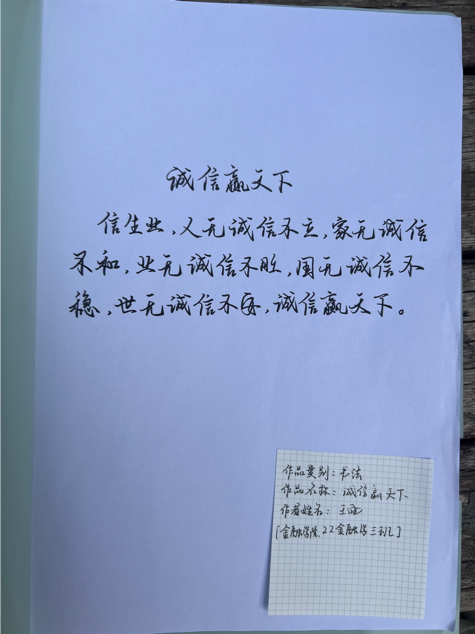 诚信赢天下
信生业，人无诚信不立，家无诚信
不和，业无诚信不旺，国无诚信不
稳，世无诚信不安，诚信赢天下。
作品类别：书法
作品名称：诚信赢天下
作者姓名：王
[金融学院 22金融学三班]